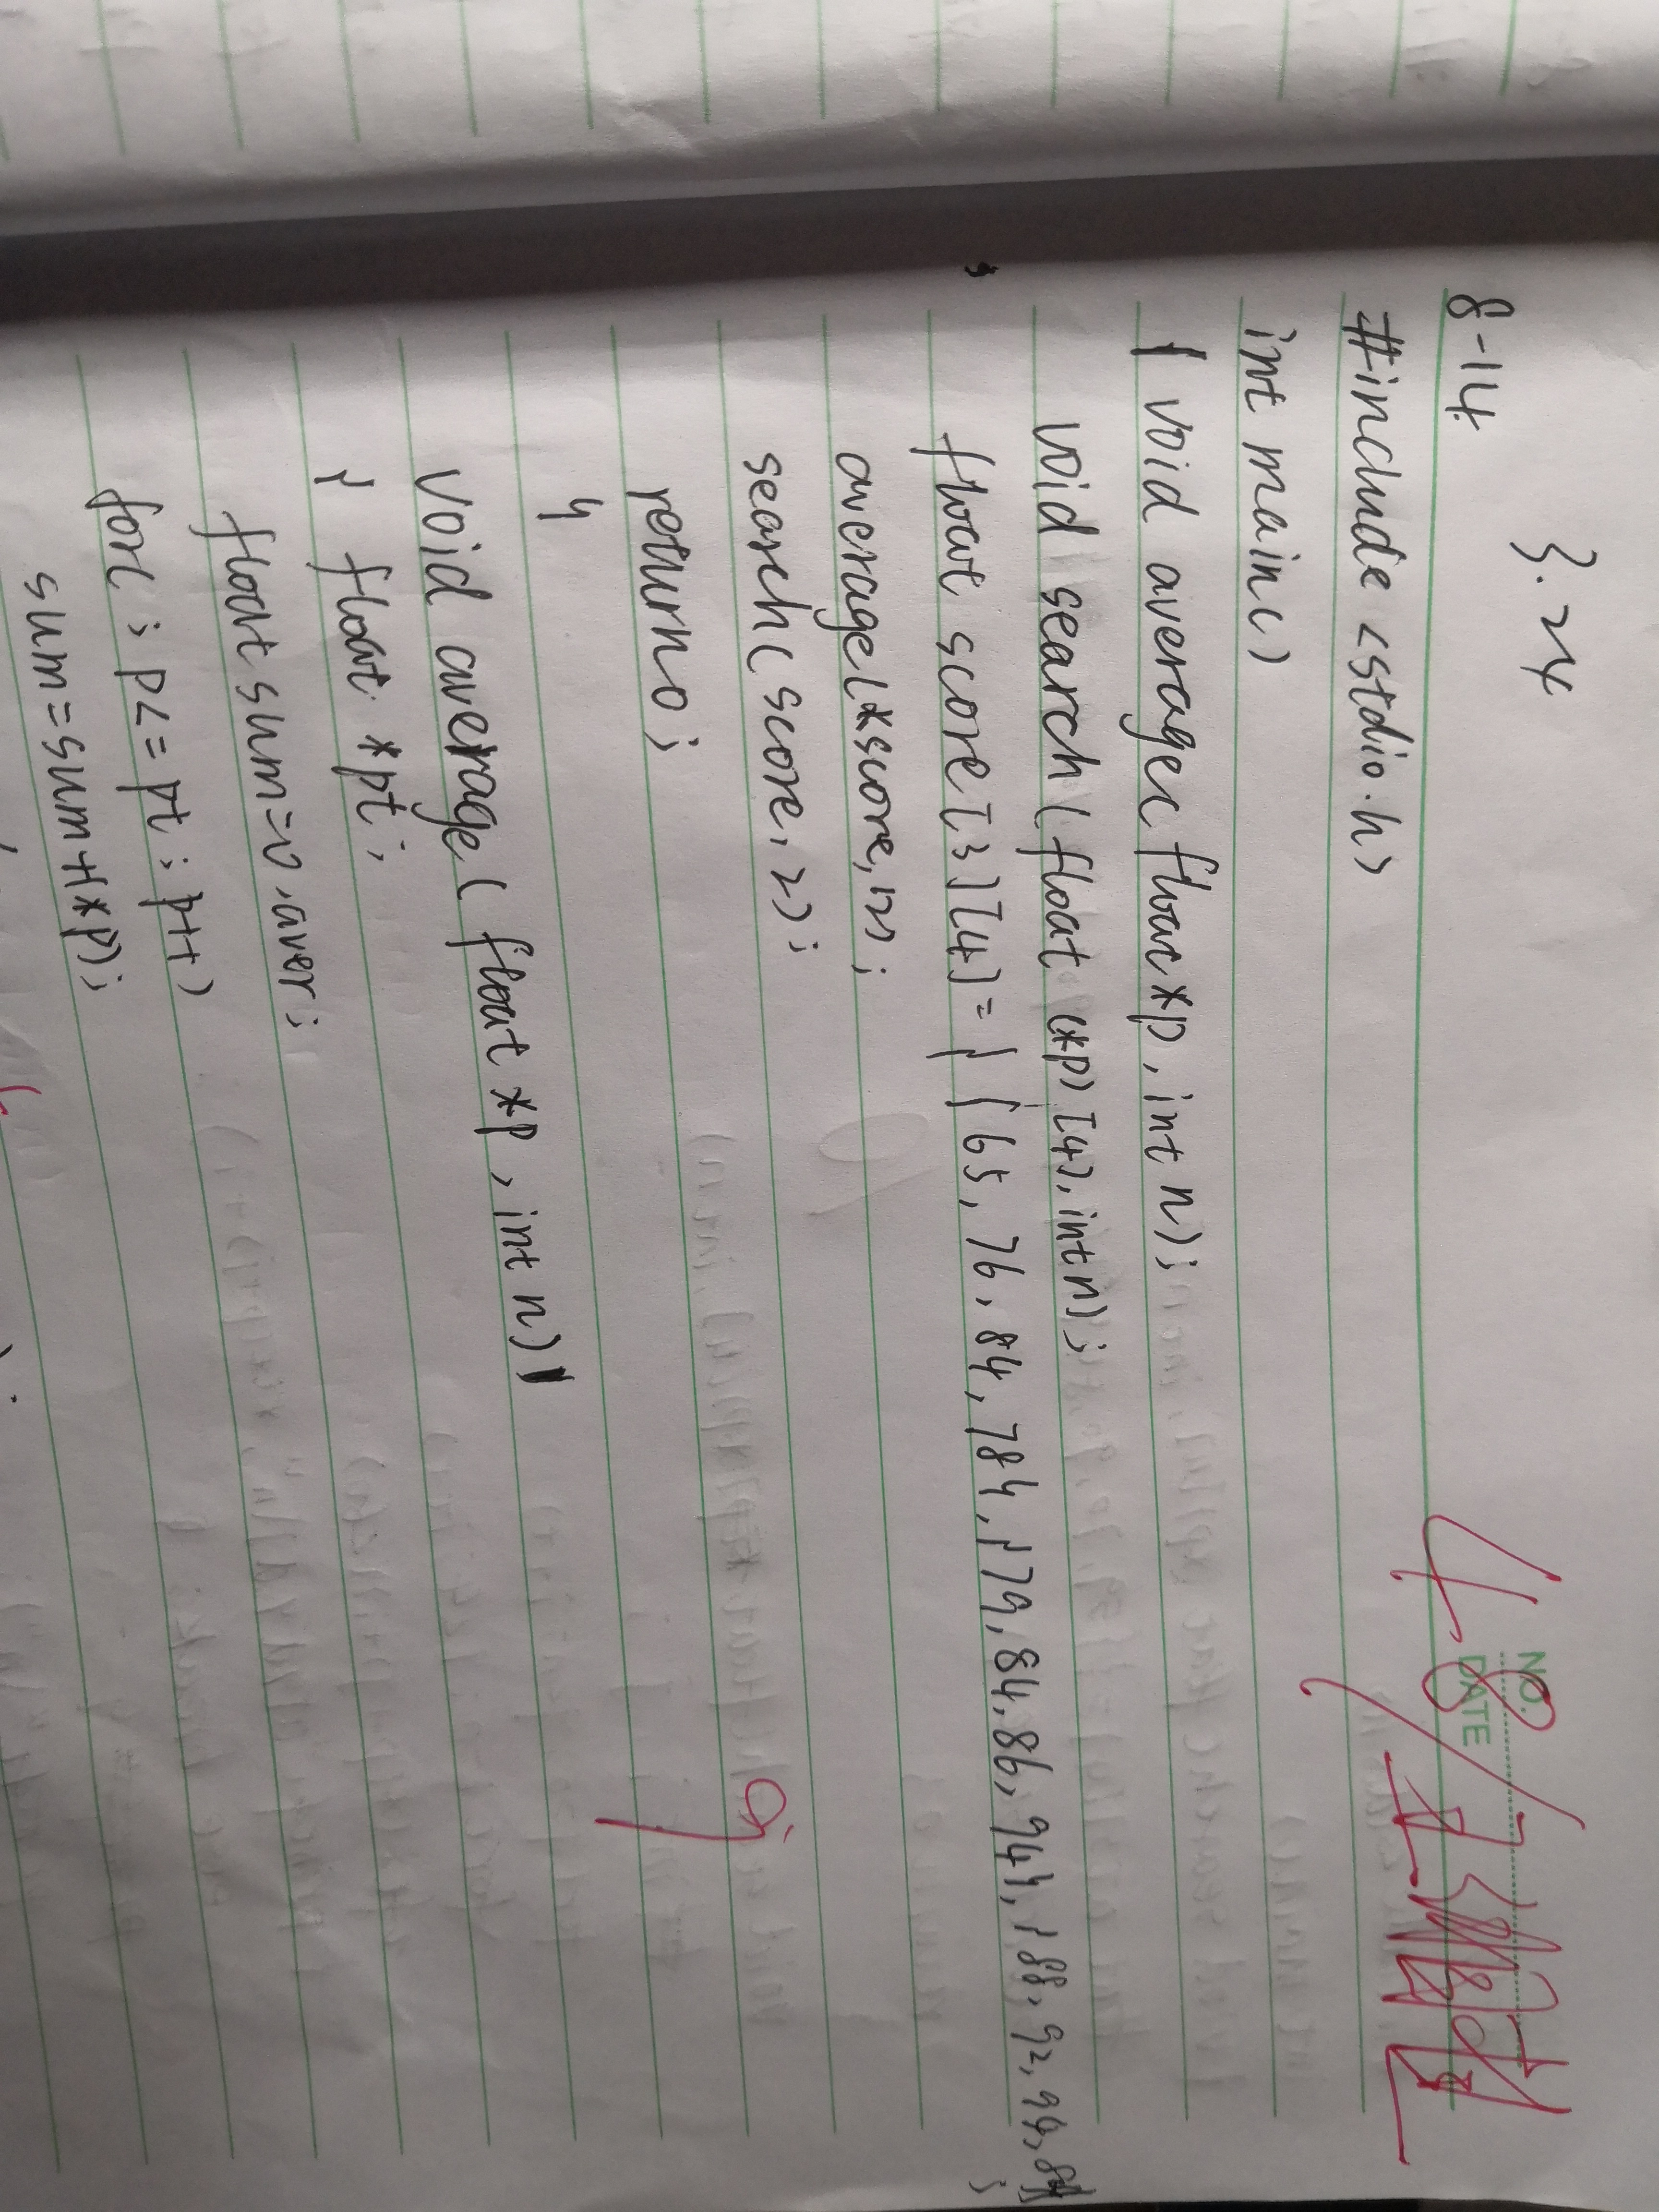 3.24
NO.
DATE
8-14
#include <stdio.h>
int main()
{ void average( float *p, int n);
void search( float (*p)[4], int n);
float score[3][4]={{65,76,84,78},{79,84,86,94},{88,92,94,
average(*score,12);
search(score,2);
return0;
}
void average( float *p, int n)
{ float *pt;
float sum=0,aver;
for( ; p<=pt; p++)
sum=sum+(*p);